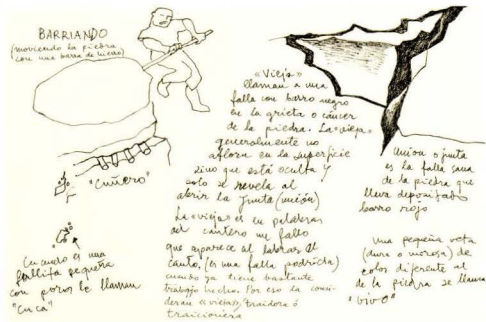 BARRIANDO
(moviendo la piedra
con una barra de hierro)
"cuñero"
Cuando es una
fallita pequeña
con poros le llaman
"cuca"
«Vieja»
llaman a una
falla con barro negro
en la grieta o cáncer
de la piedra. La «vieja»
generalmente no
aflora en la superficie
sino que está oculta y
solo se revela al
abrir la junta (unión)
La «vieja» es en palabras
del cantero un fallo
que aparece al labrar el
canto, (es una falla podrida)
cuando ya tiene bastante
trabajo hecho. Por eso la consi-
deran traidora ó
traicionera
Unión o junta
es la falla sana
de la piedra que
lleva depositado
barro rojo
Una pequeña veta
(dura o nerviosa) de
color diferente al
de la piedra se llama
"vivo"